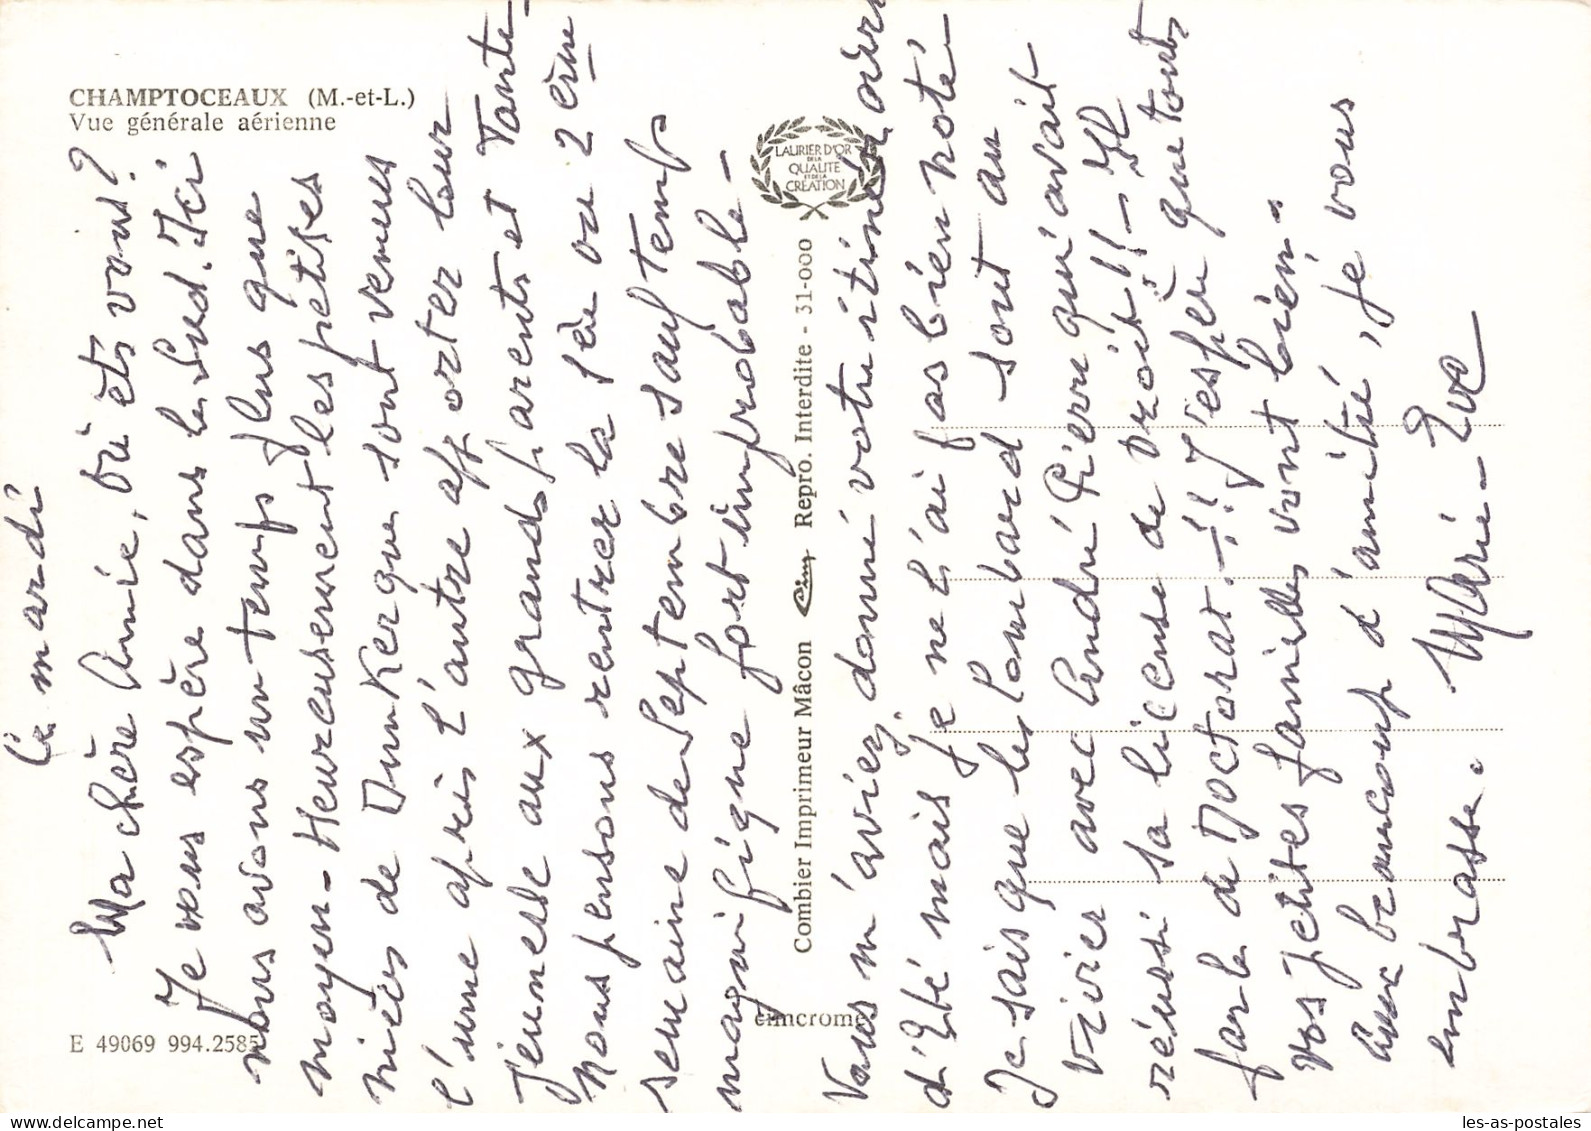 CHAMPTOCEAUX (M.-et-L.)
Vue générale aérienne
LAURIER D'OR
DE LA
QUALITE
ET DE LA
CREATION
Combier Imprimeur Mâcon Cim Repro. Interdite - 31-000
cimcrome
E 49069 994.2585
Ce mardi
Ma chère Amie, où êtes vous?
Je vous espère dans le Sud. Ici
nous avons un temps plus que
moyen - Heureusement les petites
nièces de Dunkerque sont venues
l'une après l'autre apporter leur
jeunesse aux grands parents et Tante -
Nous pensons rentrer la 1ère ou 2ème
semaine de Septembre sauf temps
magnifique fort improbable -
Vous m'aviez donné votre itinéraire
d'Eté mais je ne l'ai pas bien noté -
Je sais que les Lombard sont au
Vivier avec André Pierre qui avait
réussi sa licence de Droit!! - Il
parle de Doctorat -!! J'espère que toutes
vos petites familles vont bien -
Avec beaucoup d'amitié, je vous
embrasse. Marie-Eve
les-as-postales